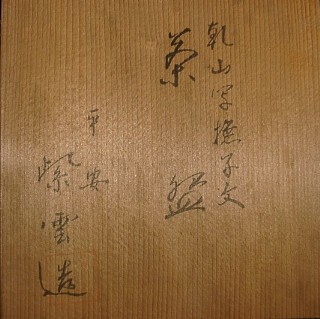 乾山写撫子文
茶盌
平安
紫雲造